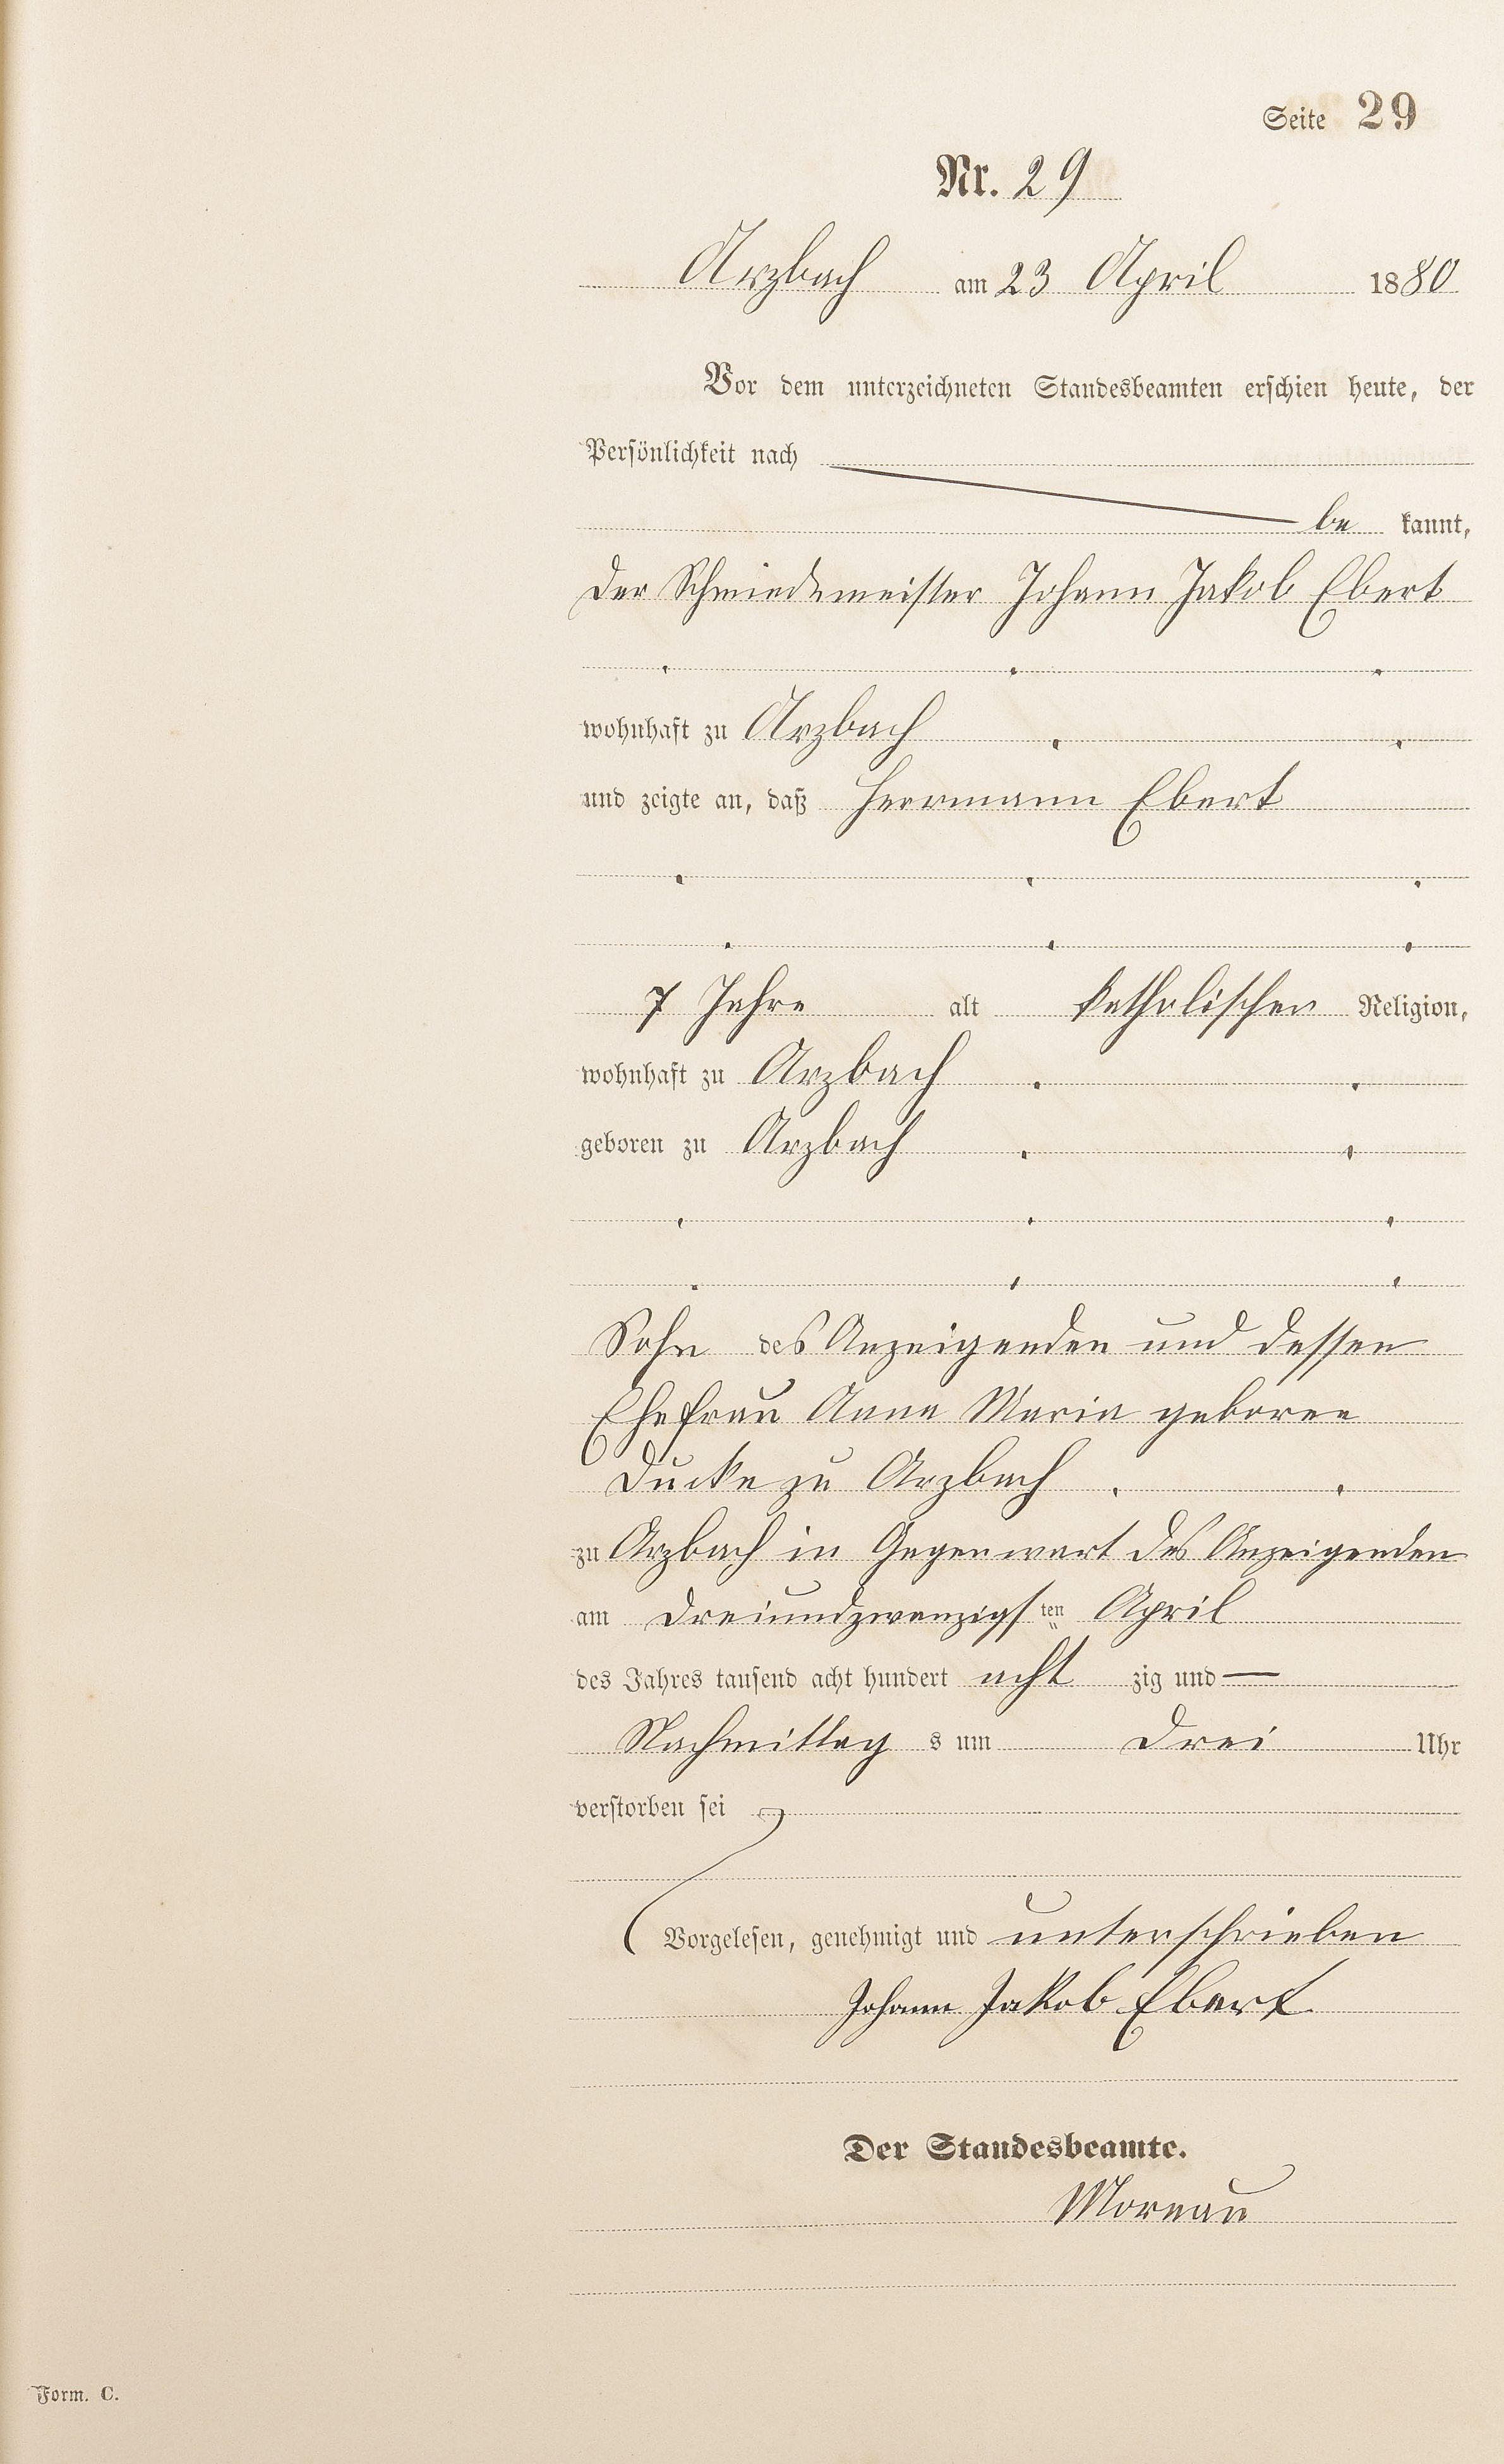 Seite 29
Nr. 29
Arzbach am 23 April 1880
Vor dem unterzeichneten Standesbeamten erschien heute, der
Persönlichkeit nach
be kannt,
der Schmiedemeister Johann Jakob Ebert
wohnhaft zu Arzbach
und zeigte an, daß Herrmann Ebert
7 Jahre alt katholischer Religion,
wohnhaft zu Arzbach
geboren zu Arzbach
Sohn des Anzeigenden und dessen
Ehefrau Anna Maria geborene
Ducke zu Arzbach
zu Arzbach in Gegenwart des Anzeigenden
am dreiundzwanzigsten April
des Jahres tausend acht hundert acht zig und —
Nachmittag s um drei Uhr
verstorben sei
Vorgelesen, genehmigt und unterschrieben
Johann Jakob Ebert
Der Standesbeamte.
Moreau
Form. C.